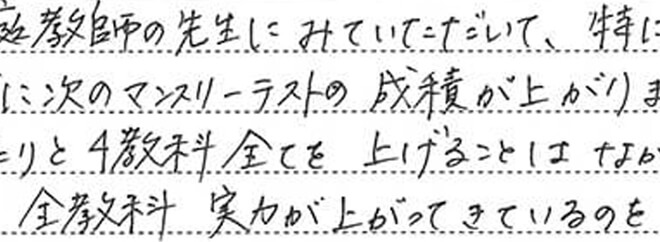 庭教師の先生にみていただいて、特に
に次のマンスリーテストの成績が上がりま
たりと4教科全てを上げることはなか
全教科実力が上がってきているのを